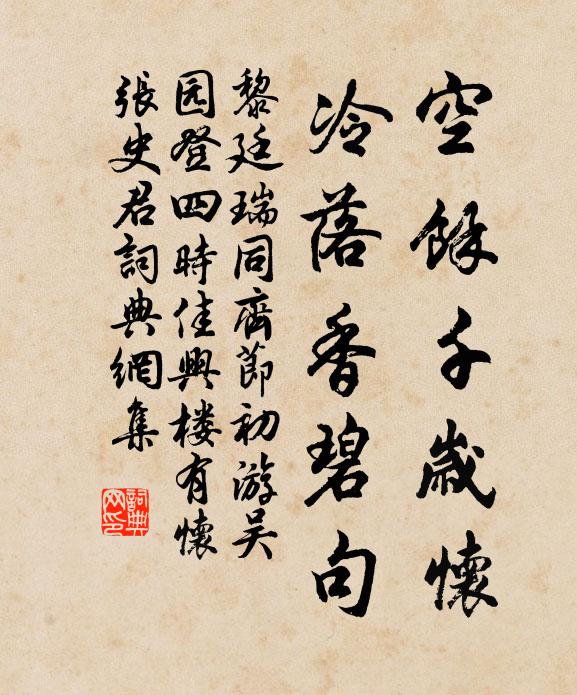 空餘千歲懷
冷落香碧句
黎廷瑞同齊節初游吴
园登四時佳興楼有懷
張史君詞典網集
詞典網印